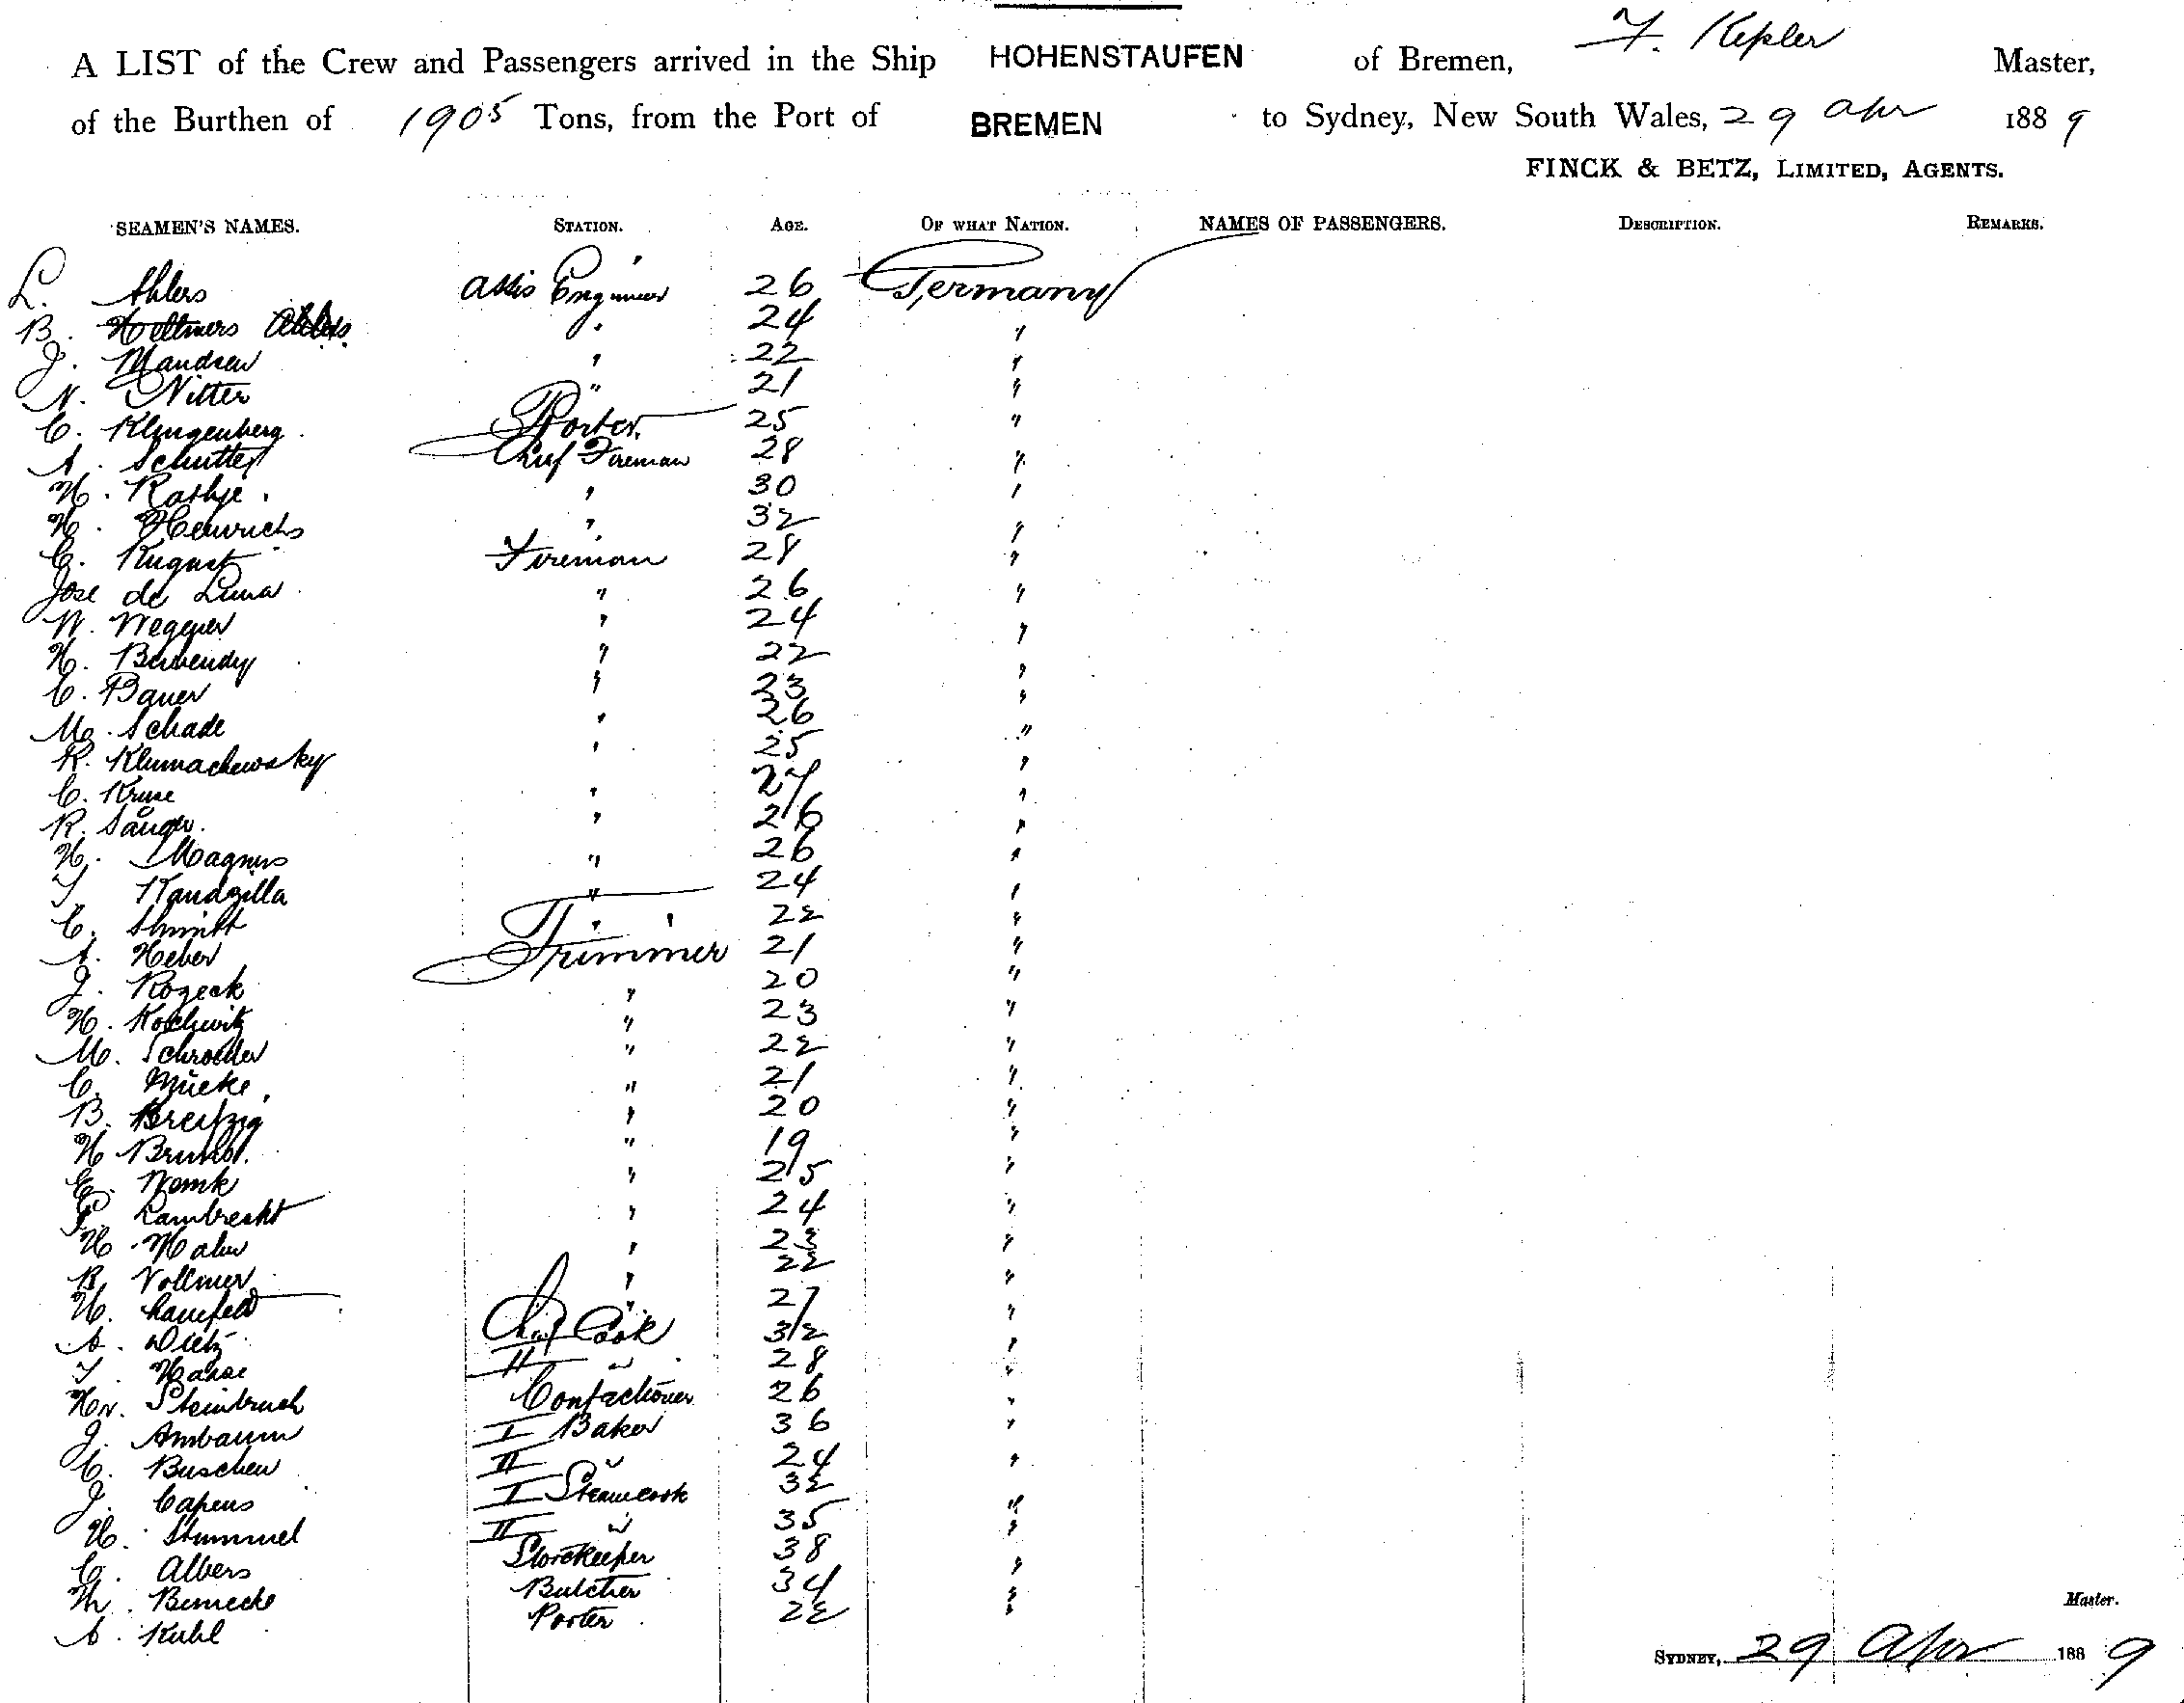 A LIST of the Crew and Passengers arrived in the Ship HOHENSTAUFEN of Bremen, F. Kepler Master,
of the Burthen of 1905 Tons, from the Port of BREMEN to Sydney, New South Wales, 29 Apr 1889
FINCK & BETZ, LIMITED, AGENTS.
SEAMEN'S NAMES. STATION. AGE. OF WHAT NATION. NAMES OF PASSENGERS. DESCRIPTION. REMARKS.
L. Ahlers Assis Engineer 26 Germany
B. 24 "
J. 22 "
N. Nitter " 21 "
C. Klingenberg Porter 25 "
A. Schutter Chief Fireman 28 "
H. Rathje " 30 "
H. Heinrichs " 32 "
C. August Fireman 28 "
Jose de Luna " 26 "
W. Wegener " 24 "
H. " 22 "
C. Bauer " 23 "
M. Schade " 26 "
R. Klumachewsky " 25 "
C. Kruse " 27 "
R. Sänger " 26 "
H. Magnus " 26 "
Kandzilla " 24 "
C. Shmitt " 22 "
A. Heber Trimmer 21 "
J. Rozeck " 20 "
H. Koschwitz " 23 "
M. Schroeder " 22 "
C. Mücke " 21 "
B. Breitzig " 20 "
H. " 19 "
" 25 "
Lambrecht " 24 "
H. " 23 "
R. Vollmer " 22 "
H. 27 "
A. Dietz Chief Cook 32 "
Haase II " 28 "
Steinbruch Confectioner 26 "
J. Ambaum I Baker 36 "
C. Buschen II " 24 "
J. Capens I Steamcook 32 "
H. Stummel II " 35 "
C. Albers Storekeeper 38 "
Th. Benecke Butcher 34 "
A. Kuhl Porter 22 "
Master.
SYDNEY, 29 Apr 1889